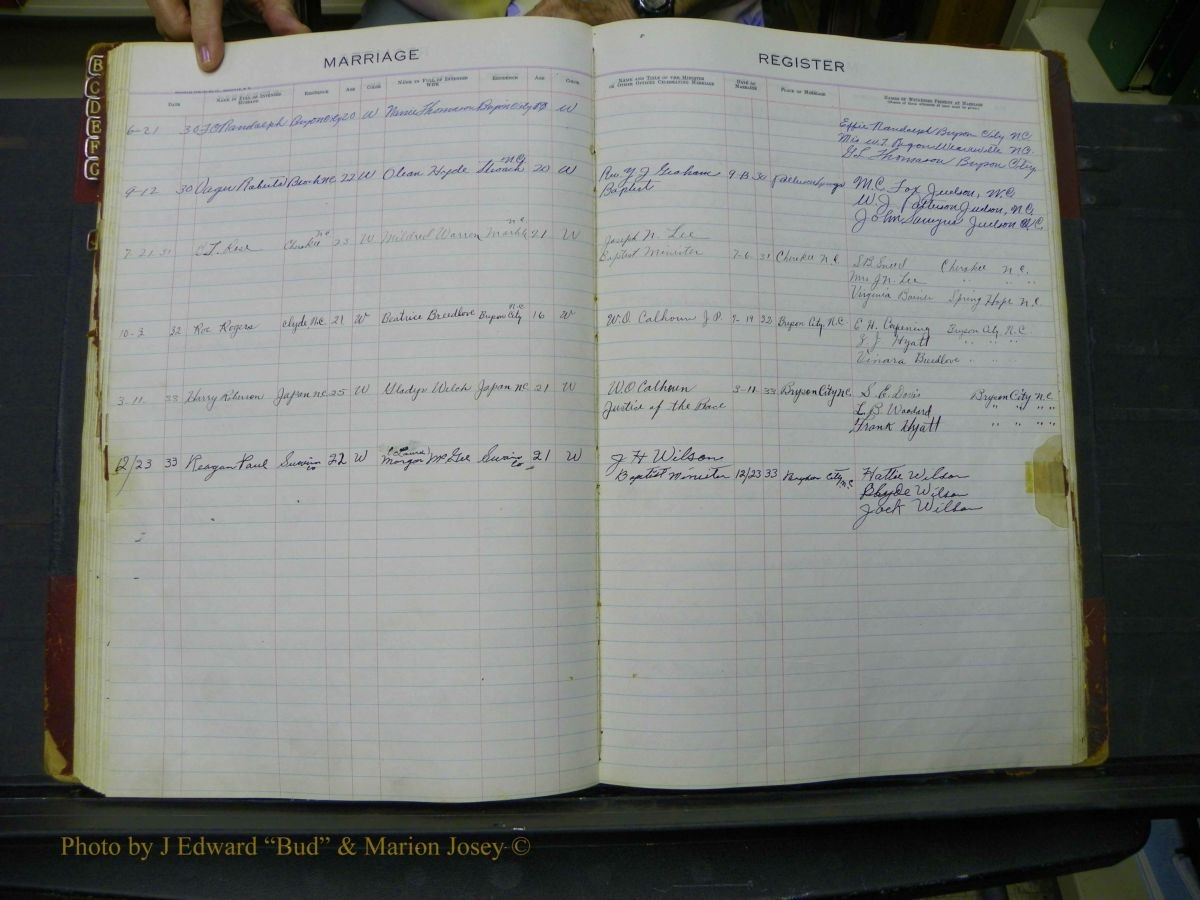 B
C
D
E
F
G
MARRIAGE
REGISTER
DATE
NAME IN FULL OF INTENDED HUSBAND
RESIDENCE
AGE
COLOR
NAME IN FULL OF INTENDED WIFE
RESIDENCE
AGE
COLOR
NAME AND TITLE OF THE MINISTER OR OTHER OFFICER CELEBRATING MARRIAGE
DATE OF MARRIAGE
PLACE OF MARRIAGE
NAMES OF WITNESSES PRESENT AT MARRIAGE
6-21 30 Randolph Bryson City 20 W Thomason Bryson City 18 W
Effie Randolph Bryson City N.C.
Weaverville N.C.
G.L. Thomason Bryson City
9-12 30 Roberts N.C. 22 W Olean Hyde N.C. 20 W Rev. Y J Graham 9-13 30 M.C. Fox Judson, N.C.
Baptist W.J. Patterson Judson, N.C.
John Sawyer Judson N.C.
7-21-31 C.L. Rose Cherokee N.C. 23 W Mildred Warren Marble N.C. 21 W Joseph N. Lee
Baptist Minister 7-6 31 Cherokee N.C. S.B. Sneed Cherokee N.C.
Mrs J.N. Lee " " "
Virginia Spring Hope N.C.
10-3 32 Roe Rogers Clyde N.C. 21 W Beatrice Breedlove Bryson City N.C. 16 W W.O. Calhoun J.P. 9-19 32 Bryson City N.C. E.H. Carpening Bryson City N.C.
J.J. Hyatt " " "
Vinara Breedlove " " "
3-11 33 Harry Roberson Japan N.C. 25 W Gladys Welch Japan N.C. 21 W W.O. Calhoun 3-11 33 Bryson City N.C. S.E. Davis Bryson City N.C.
Justice of the Peace L.B. Woodard " " " "
Frank Hyatt " " " "
12/23 33 Reagan Paul Swain Co 22 W Laura Morgan McGee Swain Co 21 W J H Wilson
Baptist Minister 12/23 33 Bryson City N.C. Hattie Wilson
Clyde Wilson
Jack Wilson
Photo by J Edward “Bud” & Marion Josey ©